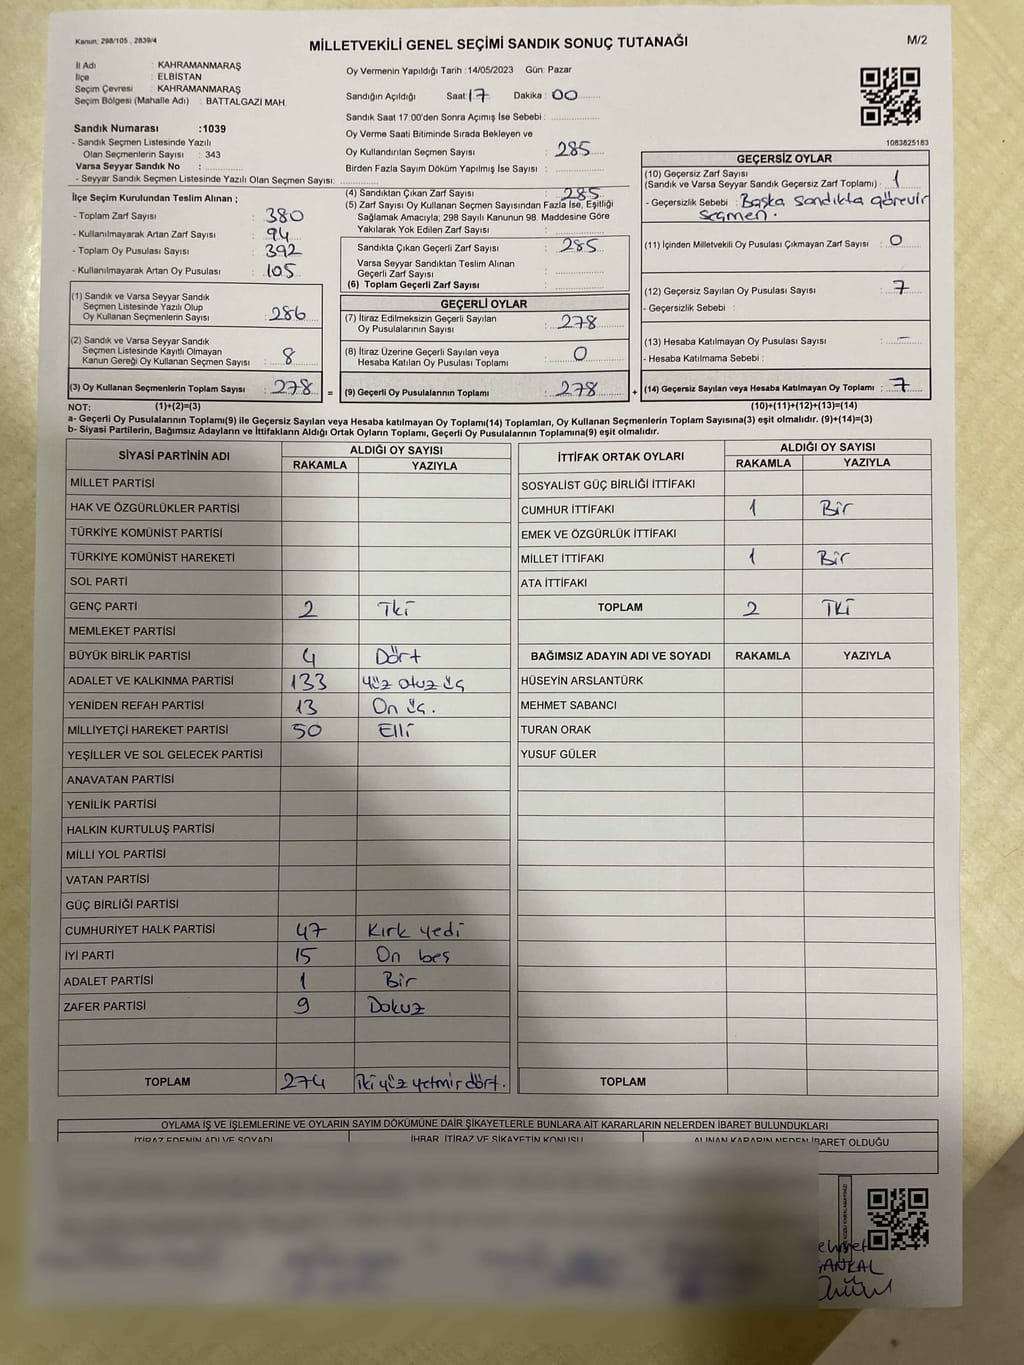 Kanun; 298/105 , 2839/4
MİLLETVEKİLİ GENEL SEÇİMİ SANDIK SONUÇ TUTANAĞI
M/2
İl Adı : KAHRAMANMARAŞ
İlçe : ELBİSTAN
Seçim Çevresi : KAHRAMANMARAŞ
Seçim Bölgesi (Mahalle Adı) : BATTALGAZİ MAH.
Sandık Numarası :1039
- Sandık Seçmen Listesinde Yazılı
Olan Seçmenlerin Sayısı : 343
Varsa Seyyar Sandık No :
- Seyyar Sandık Seçmen Listesinde Yazılı Olan Seçmen Sayısı:
Oy Vermenin Yapıldığı Tarih :14/05/2023 Gün: Pazar
Sandığın Açıldığı Saat: 17 Dakika : 00
Sandık Saat 17:00'den Sonra Açımış İse Sebebi :
Oy Verme Saati Bitiminde Sırada Bekleyen ve
Oy Kullandırılan Seçmen Sayısı : 285
Birden Fazla Sayım Döküm Yapılmış İse Sayısı :
1083825183
İlçe Seçim Kurulundan Teslim Alınan ;
- Toplam Zarf Sayısı : 380
- Kullanılmayarak Artan Zarf Sayısı : 94
- Toplam Oy Pusulası Sayısı : 392
- Kullanılmayarak Artan Oy Pusulası : 105
(1) Sandık ve Varsa Seyyar Sandık
Seçmen Listesinde Yazılı Olup
Oy Kullanan Seçmenlerin Sayısı : 286
(2) Sandık ve Varsa Seyyar Sandık
Seçmen Listesinde Kayıtlı Olmayan
Kanun Gereği Oy Kullanan Seçmen Sayısı : 8
(3) Oy Kullanan Seçmenlerin Toplam Sayısı : 278 =
(4) Sandıktan Çıkan Zarf Sayısı : 285
(5) Zarf Sayısı Oy Kullanan Seçmen Sayısından Fazla İse, Eşitliği
Sağlamak Amacıyla; 298 Sayılı Kanunun 98. Maddesine Göre
Yakılarak Yok Edilen Zarf Sayısı :
Sandıkta Çıkan Geçerli Zarf Sayısı : 285
Varsa Seyyar Sandıktan Teslim Alınan
Geçerli Zarf Sayısı :
(6) Toplam Geçerli Zarf Sayısı :
GEÇERLİ OYLAR
(7) İtiraz Edilmeksizin Geçerli Sayılan
Oy Pusulalarının Sayısı : 278
(8) İtiraz Üzerine Geçerli Sayılan veya
Hesaba Katılan Oy Pusulası Toplamı : 0
(9) Geçerli Oy Pusulalarının Toplamı : 278 +
GEÇERSİZ OYLAR
(10) Geçersiz Zarf Sayısı
(Sandık ve Varsa Seyyar Sandık Geçersiz Zarf Toplamı) : 1
- Geçersizlik Sebebi : Başka sandıkta görevlr
seçmen.
(11) İçinden Milletvekili Oy Pusulası Çıkmayan Zarf Sayısı : 0
(12) Geçersiz Sayılan Oy Pusulası Sayısı : 7
- Geçersizlik Sebebi :
(13) Hesaba Katılmayan Oy Pusulası Sayısı : -
- Hesaba Katılmama Sebebi :
(14) Geçersiz Sayılan veya Hesaba Katılmayan Oy Toplamı : 7
NOT: (1)+(2)=(3)
(10)+(11)+(12)+(13)=(14)
a- Geçerli Oy Pusulalarının Toplamı(9) ile Geçersiz Sayılan veya Hesaba katılmayan Oy Toplamı(14) Toplamları, Oy Kullanan Seçmenlerin Toplam Sayısına(3) eşit olmalıdır. (9)+(14)=(3)
b- Siyasi Partilerin, Bağımsız Adayların ve İttifakların Aldığı Ortak Oyların Toplamı, Geçerli Oy Pusulalarının Toplamına(9) eşit olmalıdır.
SİYASİ PARTİNİN ADI ALDIĞI OY SAYISI
RAKAMLA YAZIYLA
MİLLET PARTİSİ
HAK VE ÖZGÜRLÜKLER PARTİSİ
TÜRKİYE KOMÜNİST PARTİSİ
TÜRKİYE KOMÜNİST HAREKETİ
SOL PARTİ
GENÇ PARTİ 2 İki
MEMLEKET PARTİSİ
BÜYÜK BİRLİK PARTİSİ 4 Dört
ADALET VE KALKINMA PARTİSİ 133 yüz otuz üç
YENİDEN REFAH PARTİSİ 13 On üç.
MİLLİYETÇİ HAREKET PARTİSİ 50 Elli
YEŞİLLER VE SOL GELECEK PARTİSİ
ANAVATAN PARTİSİ
YENİLİK PARTİSİ
HALKIN KURTULUŞ PARTİSİ
MİLLİ YOL PARTİSİ
VATAN PARTİSİ
GÜÇ BİRLİĞİ PARTİSİ
CUMHURİYET HALK PARTİSİ 47 Kırk yedi
İYİ PARTİ 15 On beş
ADALET PARTİSİ 1 Bir
ZAFER PARTİSİ 9 Dokuz
TOPLAM 274 iki yüz yetmiş dört.
İTTİFAK ORTAK OYLARI ALDIĞI OY SAYISI
RAKAMLA YAZIYLA
SOSYALİST GÜÇ BİRLİĞİ İTTİFAKI
CUMHUR İTTİFAKI 1 Bir
EMEK VE ÖZGÜRLÜK İTTİFAKI
MİLLET İTTİFAKI 1 Bir
ATA İTTİFAKI
TOPLAM 2 İKİ
BAĞIMSIZ ADAYIN ADI VE SOYADI RAKAMLA YAZIYLA
HÜSEYİN ARSLANTÜRK
MEHMET SABANCI
TURAN ORAK
YUSUF GÜLER
TOPLAM
OYLAMA İŞ VE İŞLEMLERİNE VE OYLARIN SAYIM DÖKÜMÜNE DAİR ŞİKAYETLERLE BUNLARA AİT KARARLARIN NELERDEN İBARET BULUNDUKLARI
İTİRAZ EDENİN ADI VE SOYADI İHBAR, İTİRAZ VE ŞİKAYETİN KONUSU ALINAN KARARIN NEDEN İBARET OLDUĞU